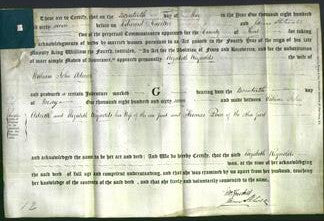 These are to Certify, that on the Twentieth day of May in the Year One thousand eight hundred
and forty seven before us Edward and James
two of the perpetual Commissioners appointed for the County of Kent for taking
acknowledgments of deeds by married women pursuant to an Act passed in the Fourth Year of the reign of his late
Majesty King William the Fourth, intituled, "An Act for the Abolition of Fines and Recoveries, and for the substitution
of more simple Modes of Assurance," appeared personally Elizabeth Reynolds
William John
and produced a certain Indenture marked G bearing date the Twentieth day
of May One thousand eight hundred and forty seven and made between William John
and Elizabeth Reynolds his Wife of the one part and Thomas of the other part
and acknowledged the same to be her act and deed: And We do hereby Certify, that the said Elizabeth Reynolds
was, at the time of her acknowledging
the said deed, of full age and competent understanding, and that she was examined by us apart from her husband, touching
her knowledge of the contents of the said deed, and that she freely and voluntarily consented to the same.